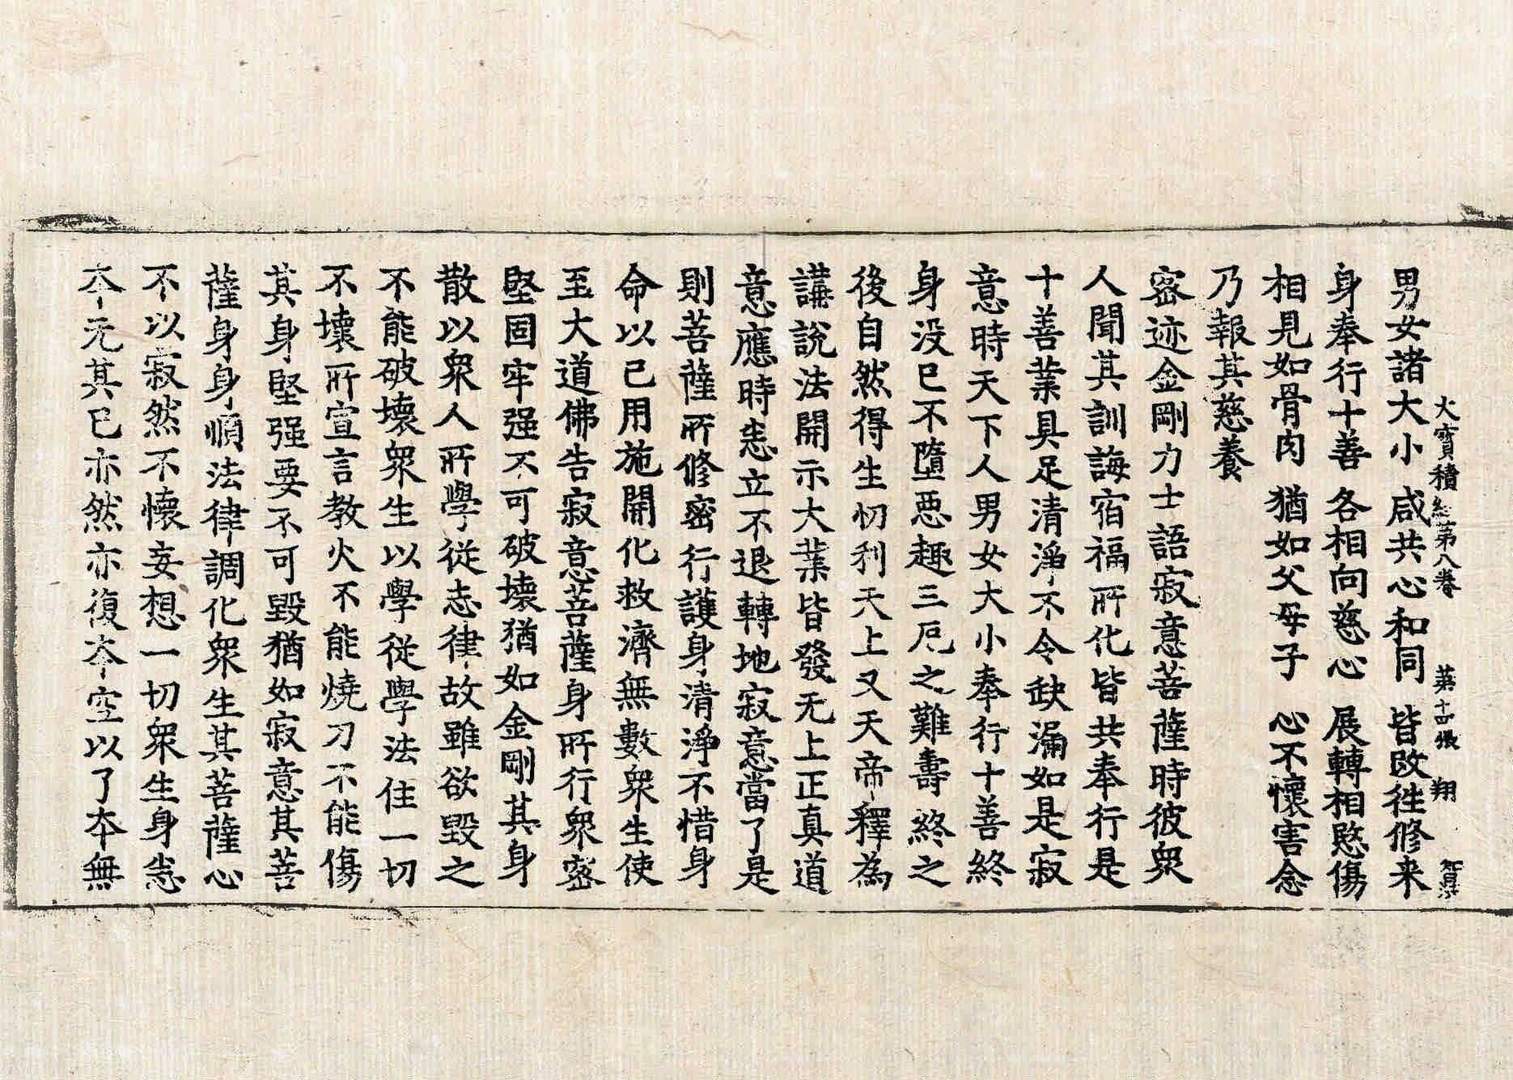 大寶積經第八卷 第十四張 翔
男女諸大小 咸共心和同 皆改往修来
身奉行十善 各相向慈心 展轉相愍傷
相見如骨肉 猶如父母子 心不懷害念
乃報其慈養
密迹金剛力士語寂意菩薩時彼衆
人聞其訓誨宿福所化皆共奉行是
十善業具足清淨不令缺漏如是寂
意時天下人男女大小奉行十善終
身没已不墮惡趣三厄之難壽終之
後自然得生忉利天上又天帝釋為
講說法開示大業皆發无上正真道
意應時悉立不退轉地寂意當了是
則菩薩所修密行護身清淨不惜身
命以已用施開化救濟無數衆生使
至大道佛告寂意菩薩身所行衆密
堅固牢强不可破壞猶如金剛其身
散以衆人所學從志律故雖欲毀之
不能破壞衆生以學從學法住一切
不壞所宣言教火不能燒刀不能傷
其身堅强要不可毀猶如寂意其菩
薩身身順法律調化衆生其菩薩心
不以寂然不懷妄想一切衆生身悉
本无其已亦然亦復本空以了本無